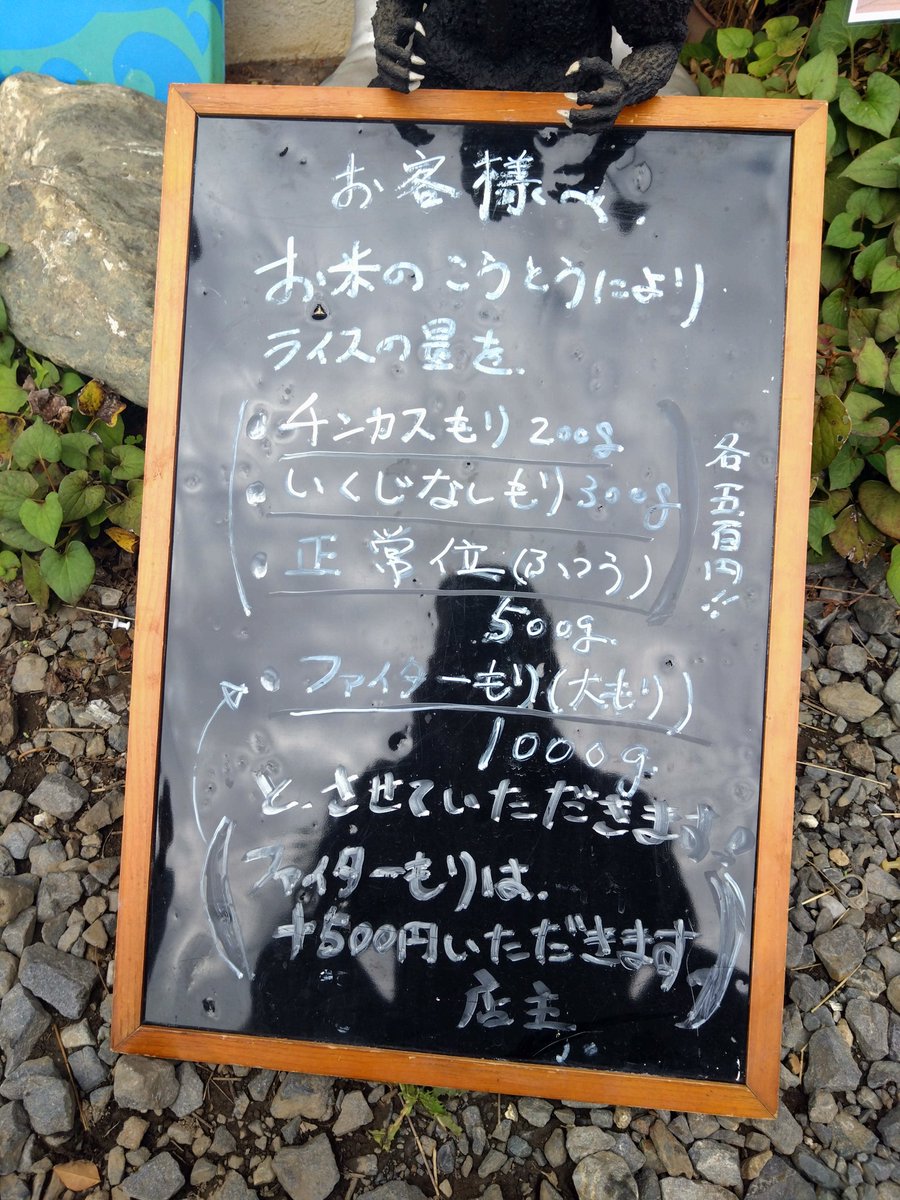 お客様へ
お米のこうとうにより
ライスの量を、
・チンカスもり 200g
・いくじなしもり 300g
・正常位(ふつう)
500g.
各五百円!!
・ファイターもり(大もり)
1000g.
と、させていただきます。
(ファイターもりは、
+500円いただきます)
店主